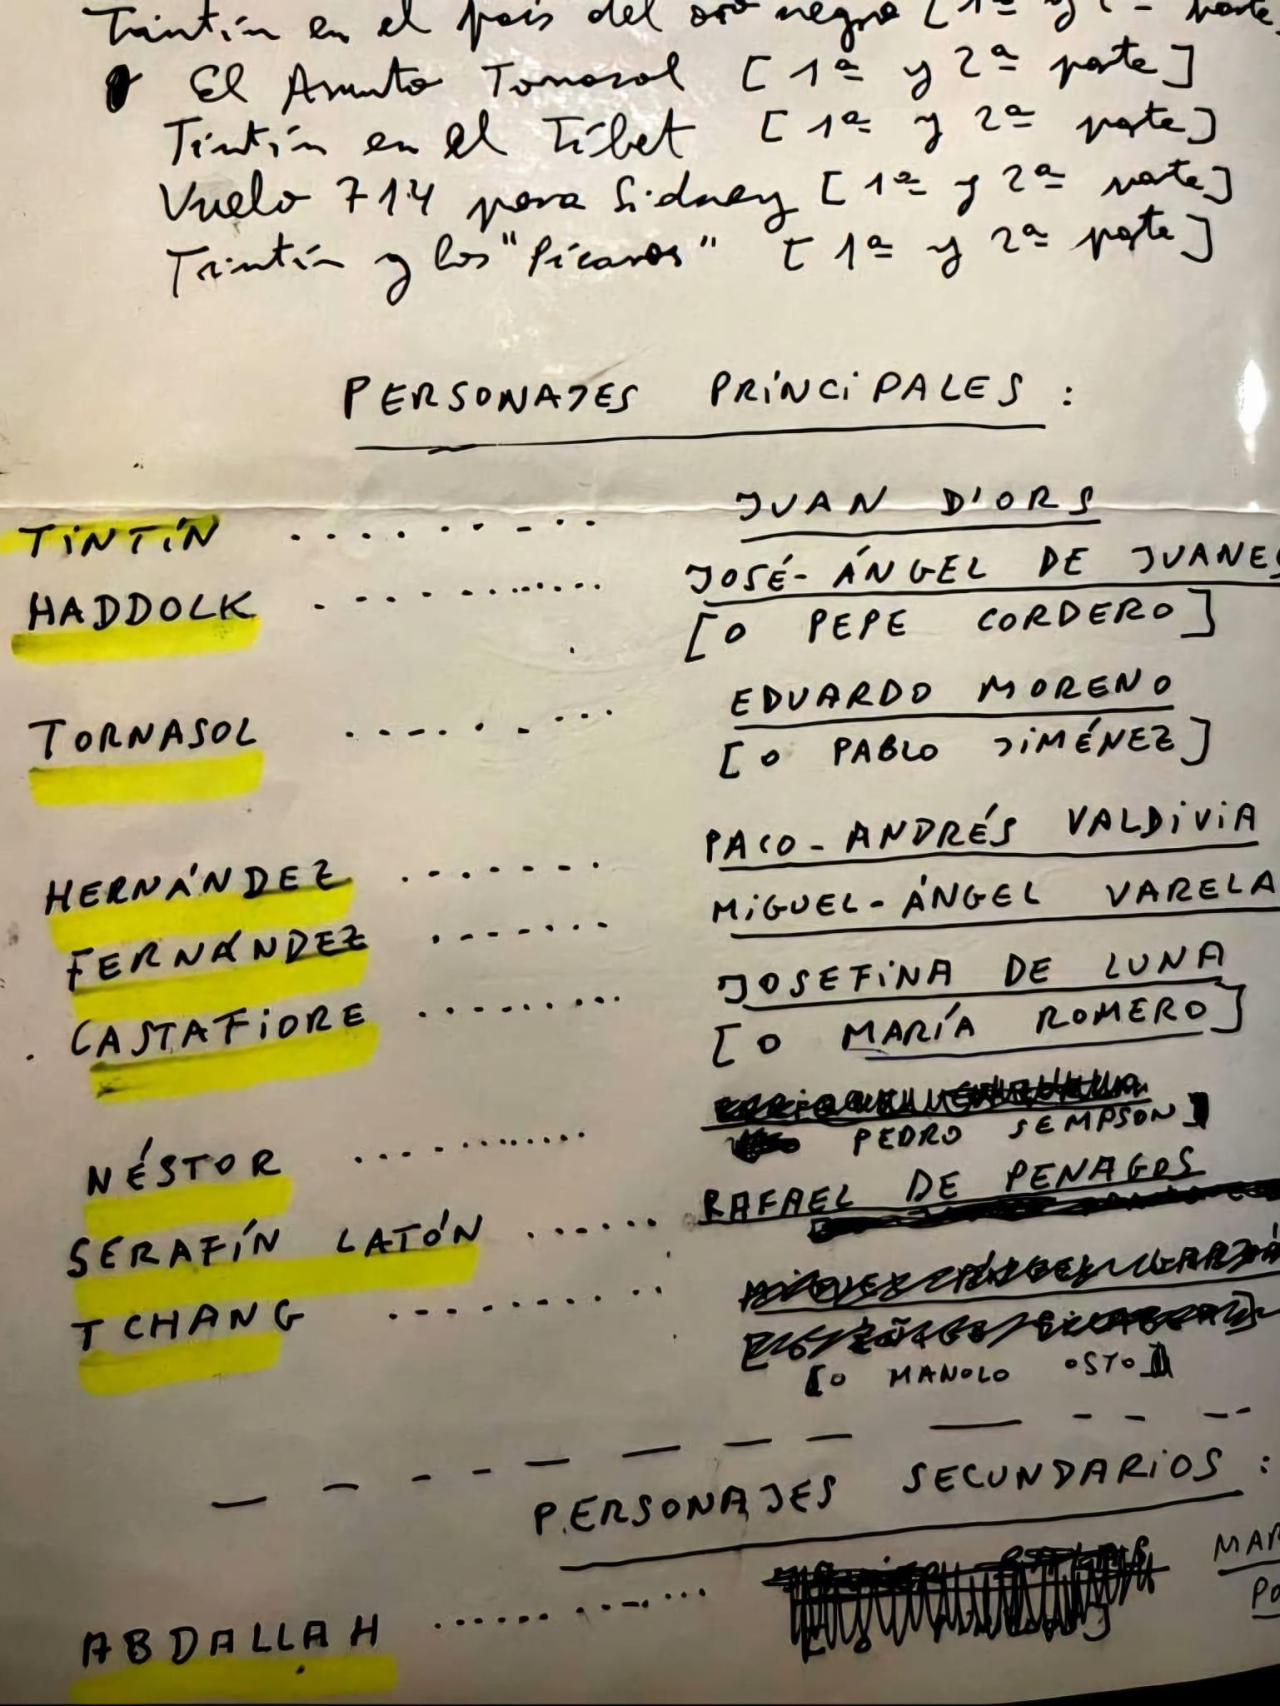 Tintín en el país del oro negro [1ª y 2ª parte]
El Asunto Tornasol [1ª y 2ª parte]
Tintín en el Tíbet [1ª y 2ª parte]
Vuelo 714 para Sidney [1ª y 2ª parte]
Tintín y los "Pícaros" [1ª y 2ª parte]
PERSONAJES PRINCIPALES :
TINTÍN .......... JUAN D'ORS
HADDOLK .......... JOSÉ-ÁNGEL DE JUANES
[O PEPE CORDERO]
TORNASOL .......... EDUARDO MORENO
[O PABLO JIMÉNEZ]
HERNÁNDEZ ....... PACO-ANDRÉS VALDIVIA
FERNÁNDEZ ....... MIGUEL-ÁNGEL VARELA
CASTAFIORE ......... JOSEFINA DE LUNA
[O MARÍA ROMERO]
NÉSTOR .......... PEDRO SEMPSON]
SERAFÍN LATÓN ...... RAFAEL DE PENAGOS
TCHANG ..........
[O MANOLO OSTO]
PERSONAJES SECUNDARIOS :
ABDALLAH ............